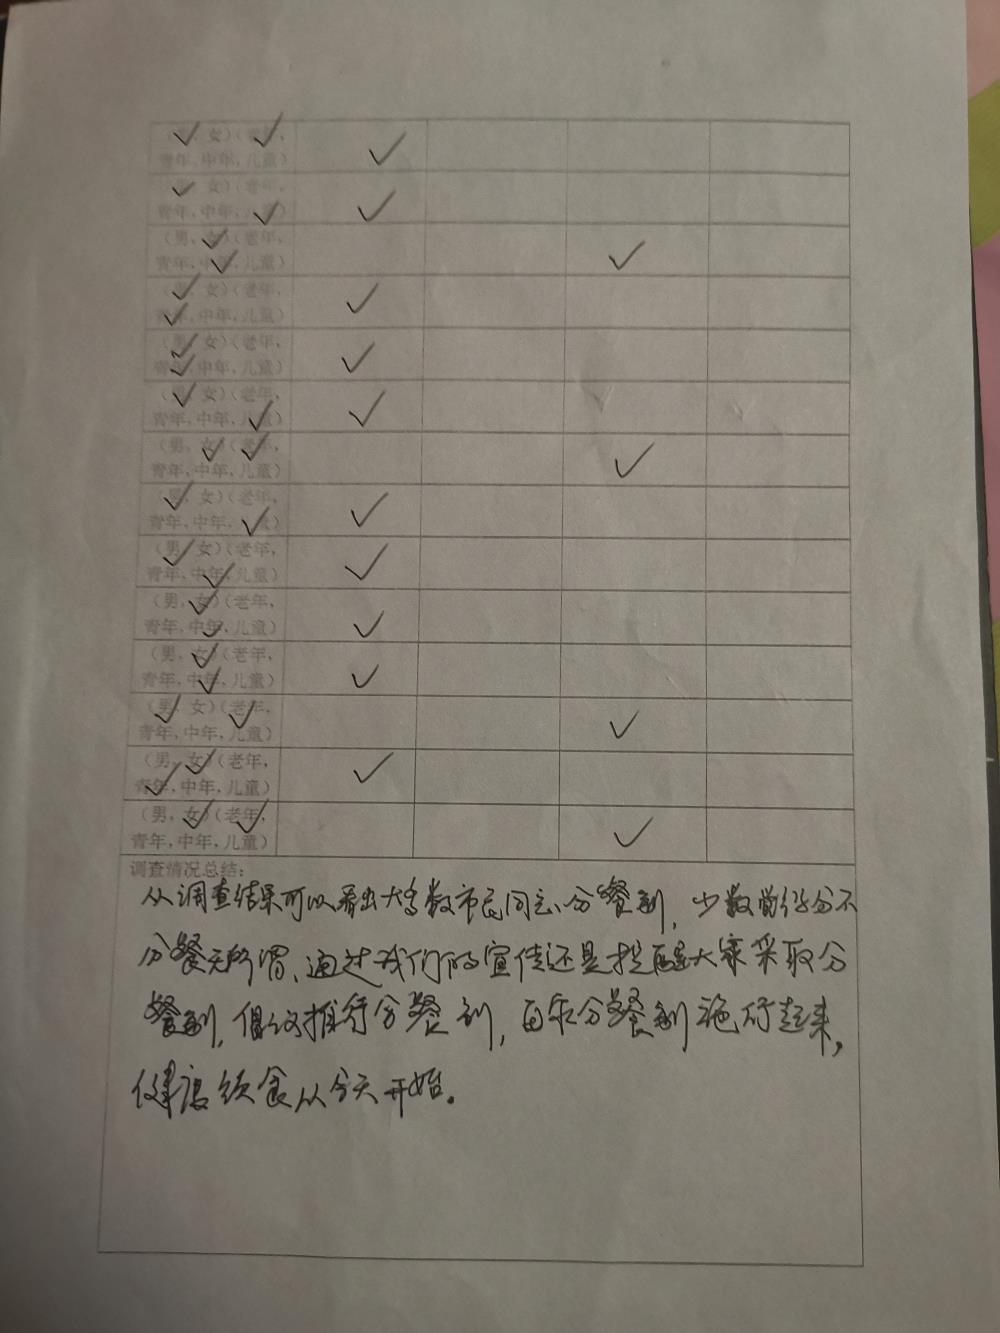 （男，女）（老年，
青年，中年，儿童）
（男，女）（老年，
青年，中年，儿童）
（男，女）（老年，
青年，中年，儿童）
（男，女）（老年，
青年，中年，儿童）
（男，女）（老年，
青年，中年，儿童）
（男，女）（老年，
青年，中年，儿童）
（男，女）（老年，
青年，中年，儿童）
（男，女）（老年，
青年，中年，儿童）
（男，女）（老年，
青年，中年，儿童）
（男，女）（老年，
青年，中年，儿童）
（男，女）（老年，
青年，中年，儿童）
（男，女）（老年，
青年，中年，儿童）
（男，女）（老年，
青年，中年，儿童）
（男，女）（老年，
青年，中年，儿童）
调查情况总结：
从调查结果可以看出大多数市民同意分餐制，少数觉得分不
分餐无所谓、通过我们的宣传还是提醒大家采取分
餐制，倡议推行分餐制，分餐制施行起来，
健康饮食从今天开始。